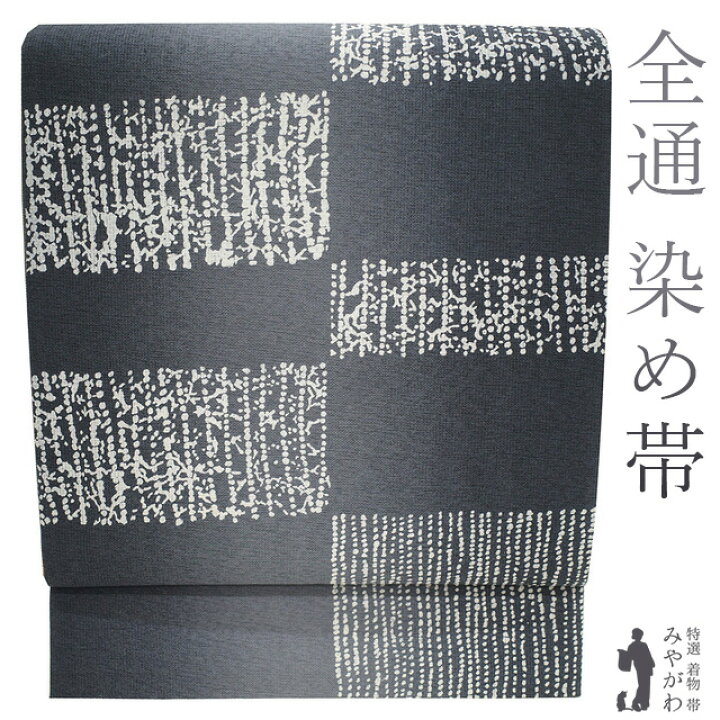 全通 染め帯
特選 着物 帯
みやがわ